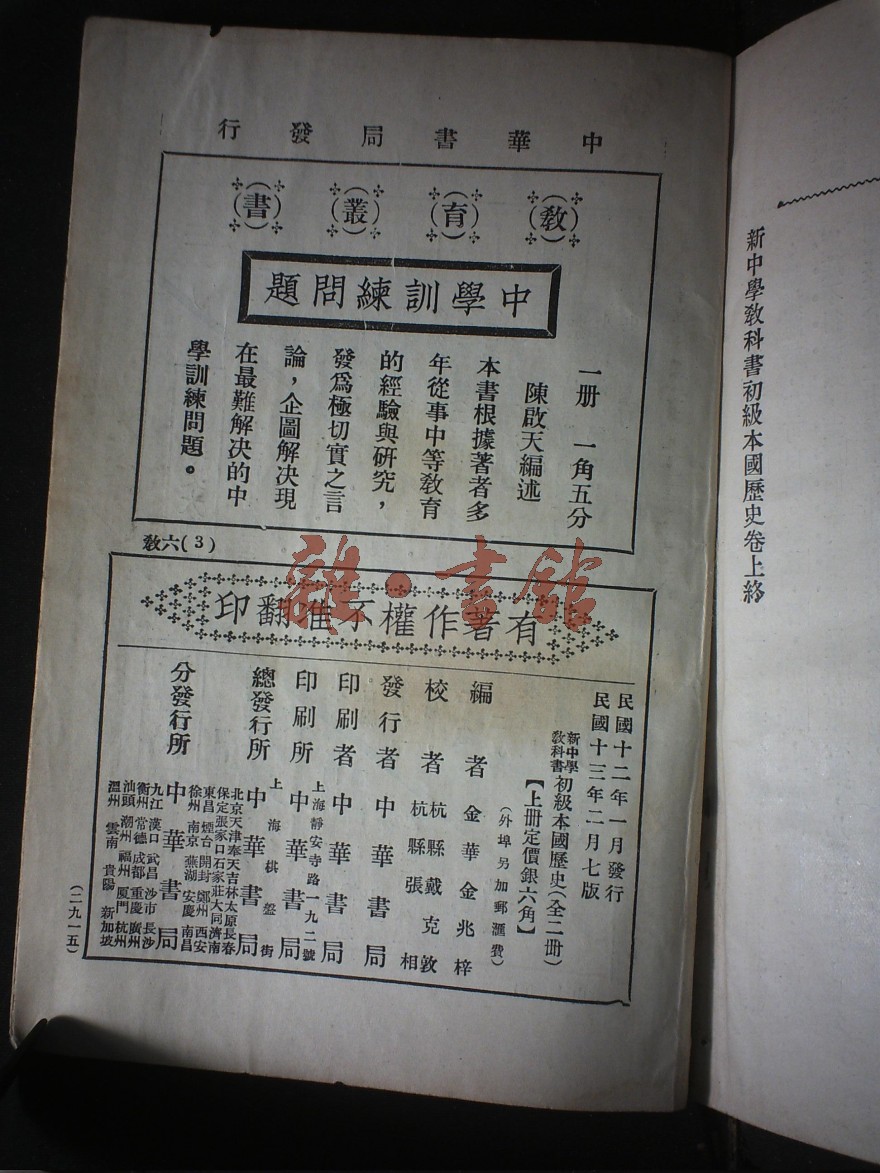 新中學教科書初級本國歷史卷上終
中華書局發行
教育叢書
中學訓練問題
一册 一角五分
陳啟天編述
本書根據著者多
年從事中等教育
的經驗與研究，
發爲極切實之言
論，企圖解决現
在最難解决的中
學訓練問題。
教六(3)
有著作權不准翻印
民國十二年一月發行
民國十三年二月七版
新中學教科書初級本國歷史(全二册)
【上册定價銀六角】
(外埠另加郵滙費)
編者 金華金兆梓
校者 杭縣戴克敦
杭縣張相
發行者 中華書局
印刷者 中華書局
上海靜安寺路一九二號
印刷所 中華書局
上海棋盤街
總發行所 中華書局
北京天津奉天吉林太原長春
保定張家口石家莊大同濟南
東昌 煙台 開封 鄭州 西安
徐州 南京 蕪湖 安慶 南昌
分發行所 中華書局
九江 漢口 武昌 沙市 長沙
衡州 常德 成都 重慶 廣州
汕頭 潮州 福州 厦門 杭州
溫州 雲南 貴陽 新加坡
(二九一五)
雜·書館